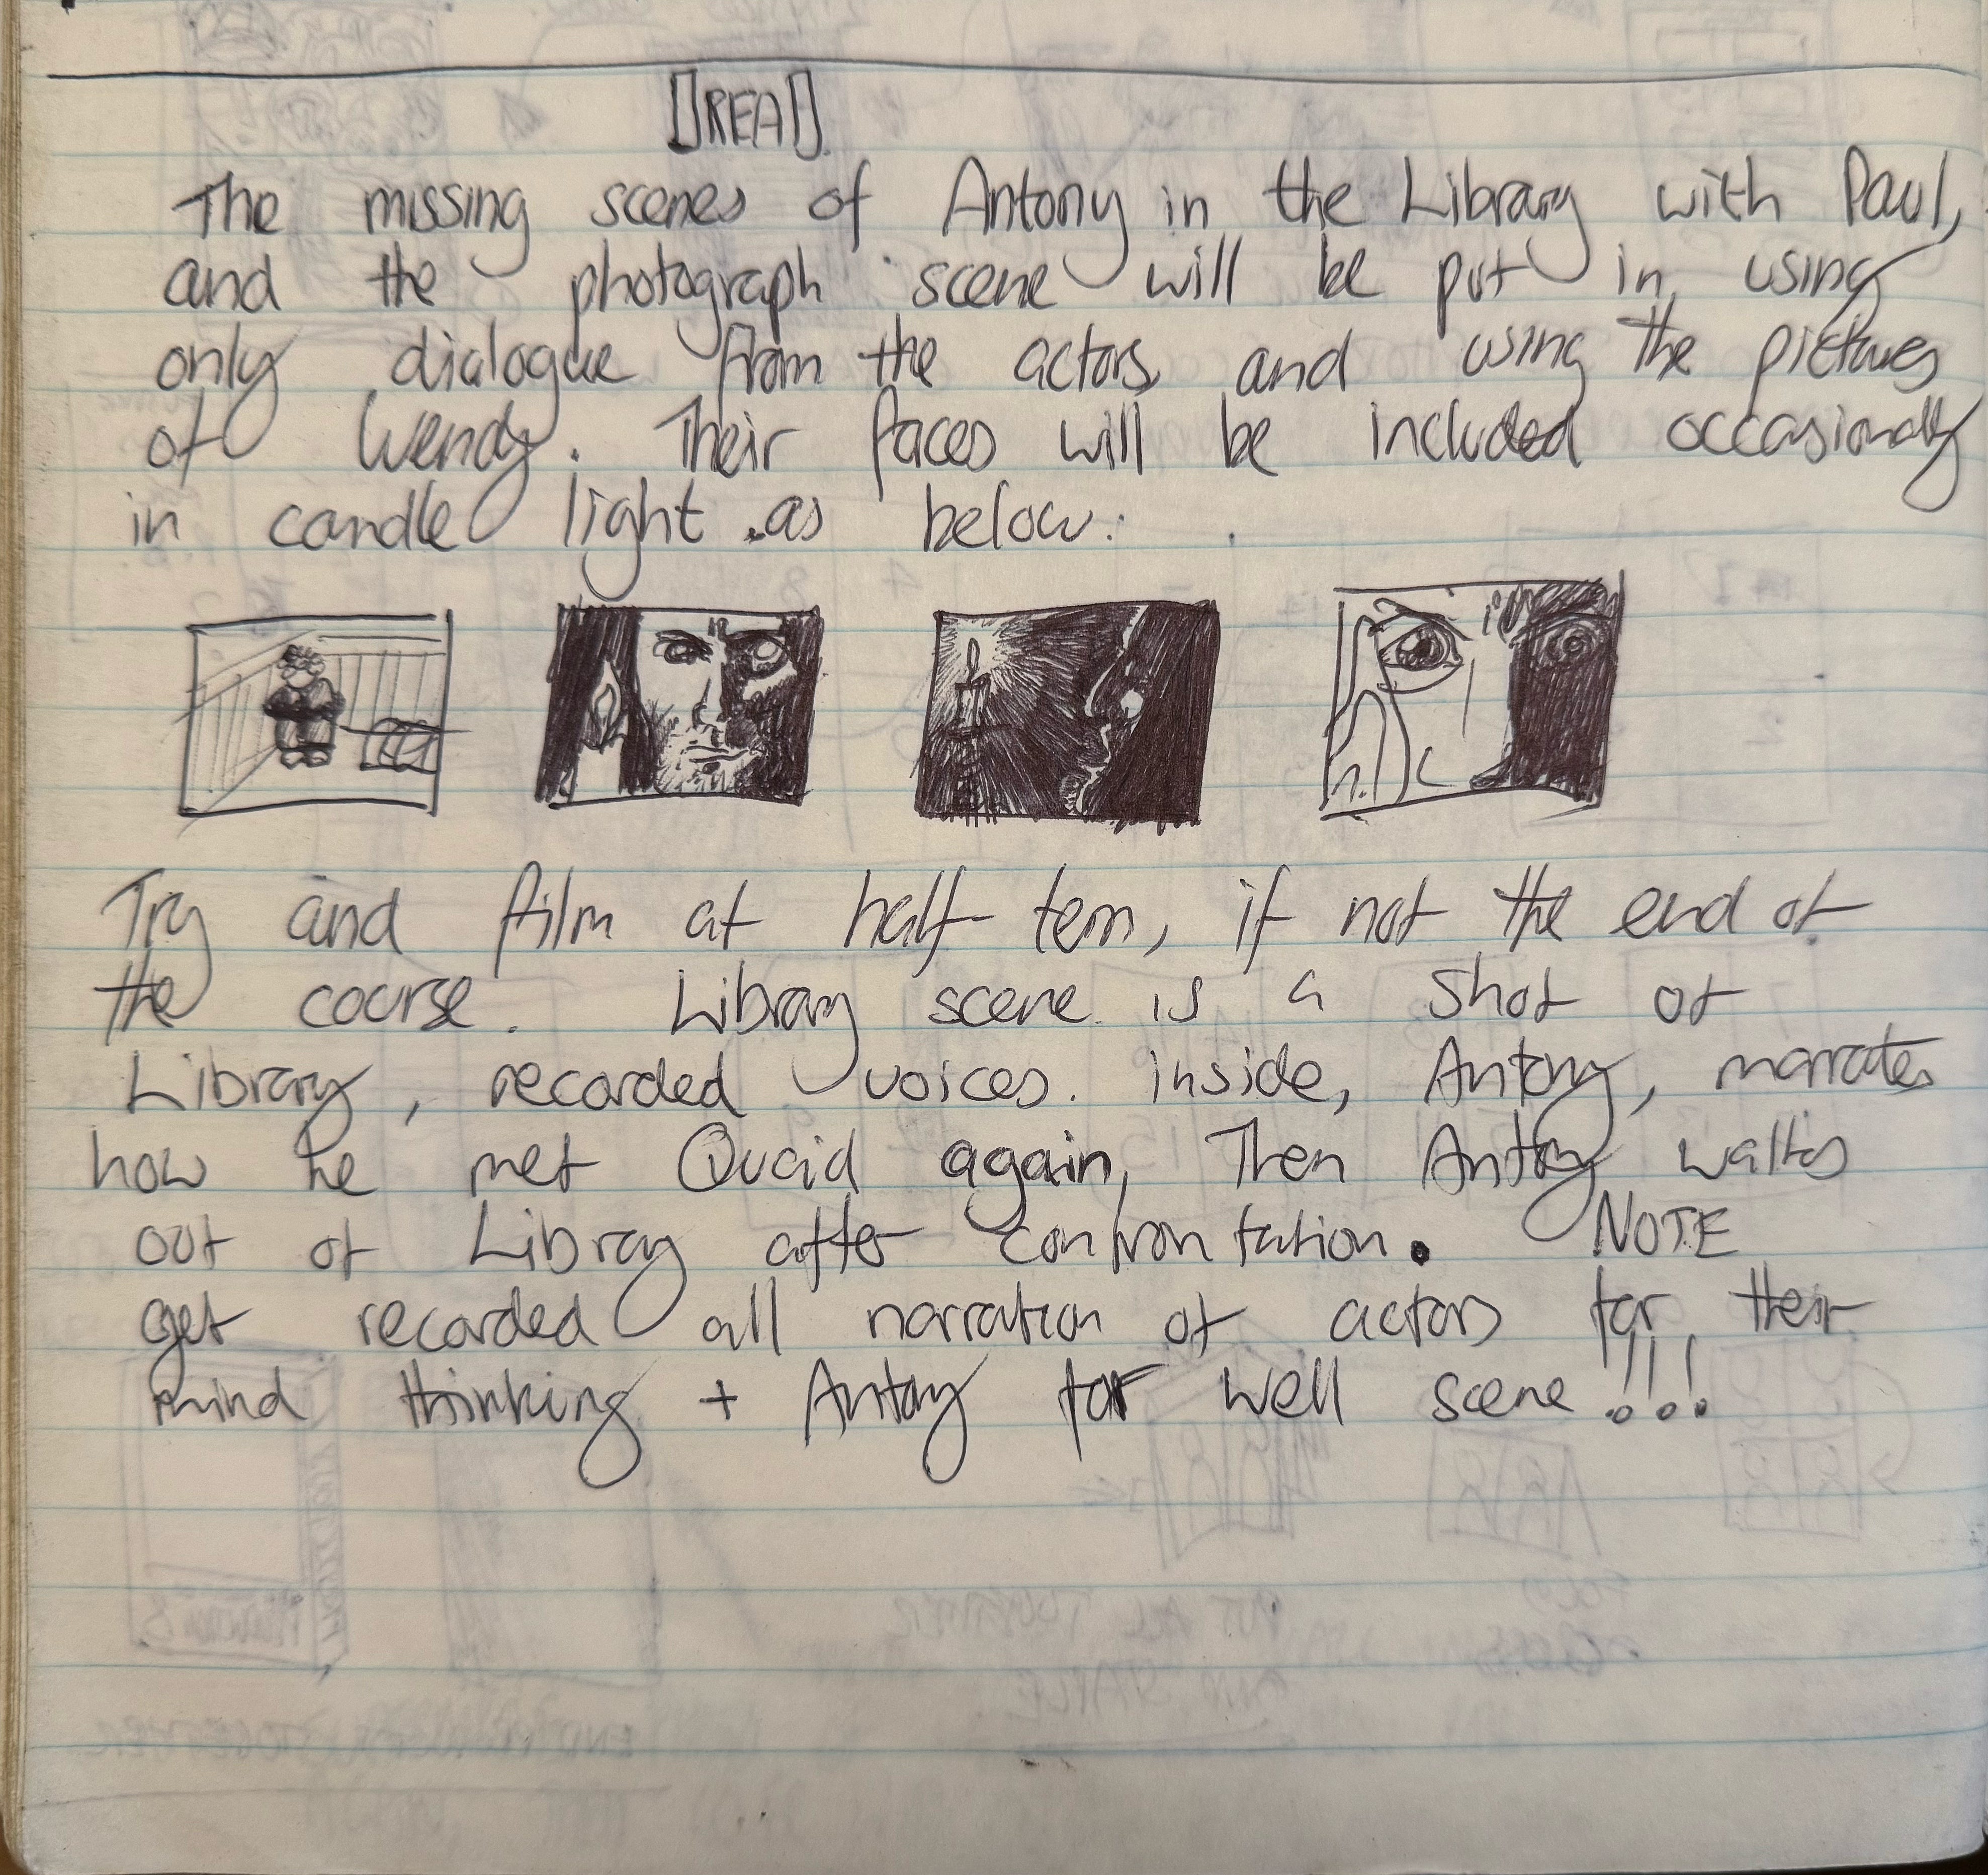 DREAD.
The missing scenes of Antony in the Library with Paul,
and the photograph scene will be put in, using
only dialogue from the actors, and using the pictures
of Wendy. Their faces will be included occasionally
in candle light as below:
Try and film at half-term, if not the end of
the course. Library scene is a shot of
Library, recorded voices. inside, Antony, narrates
how he met Quaid again, Then Antony walks
out of Library after confrontation. NOTE
get recorded all narration of actors for their
mind thinking + Antony for well scene!!!